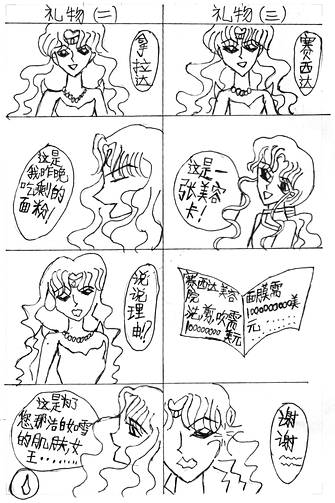 礼物(二)
拿拉达
这是
我昨晚
吃剩的
面粉!
说说
理由!?
这是为了
您那洁白如雪
的肌肤女
王……
礼物(三)
赛西达
这是一
张美容
卡!
赛西达美容
院
洗,剪,吹需
10000000美元
面膜需
1000000000美
元………
谢
谢